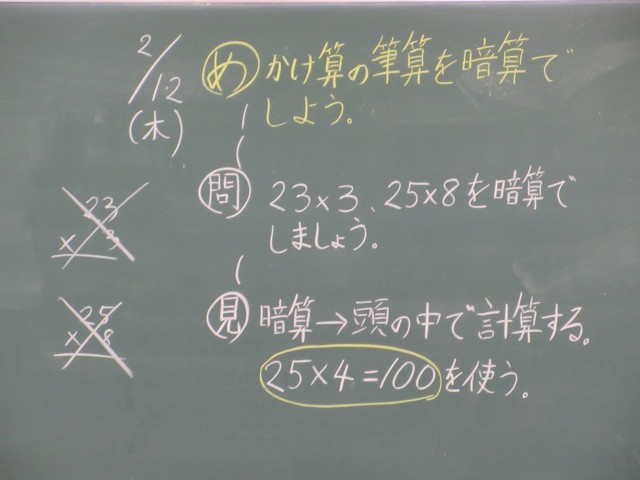 2/12
(木)
め かけ算の筆算を暗算で
しよう。
問 23×3、25×8を暗算で
しましょう。
23
×3
25
×8
見 暗算→頭の中で計算する。
25×4=100を使う。